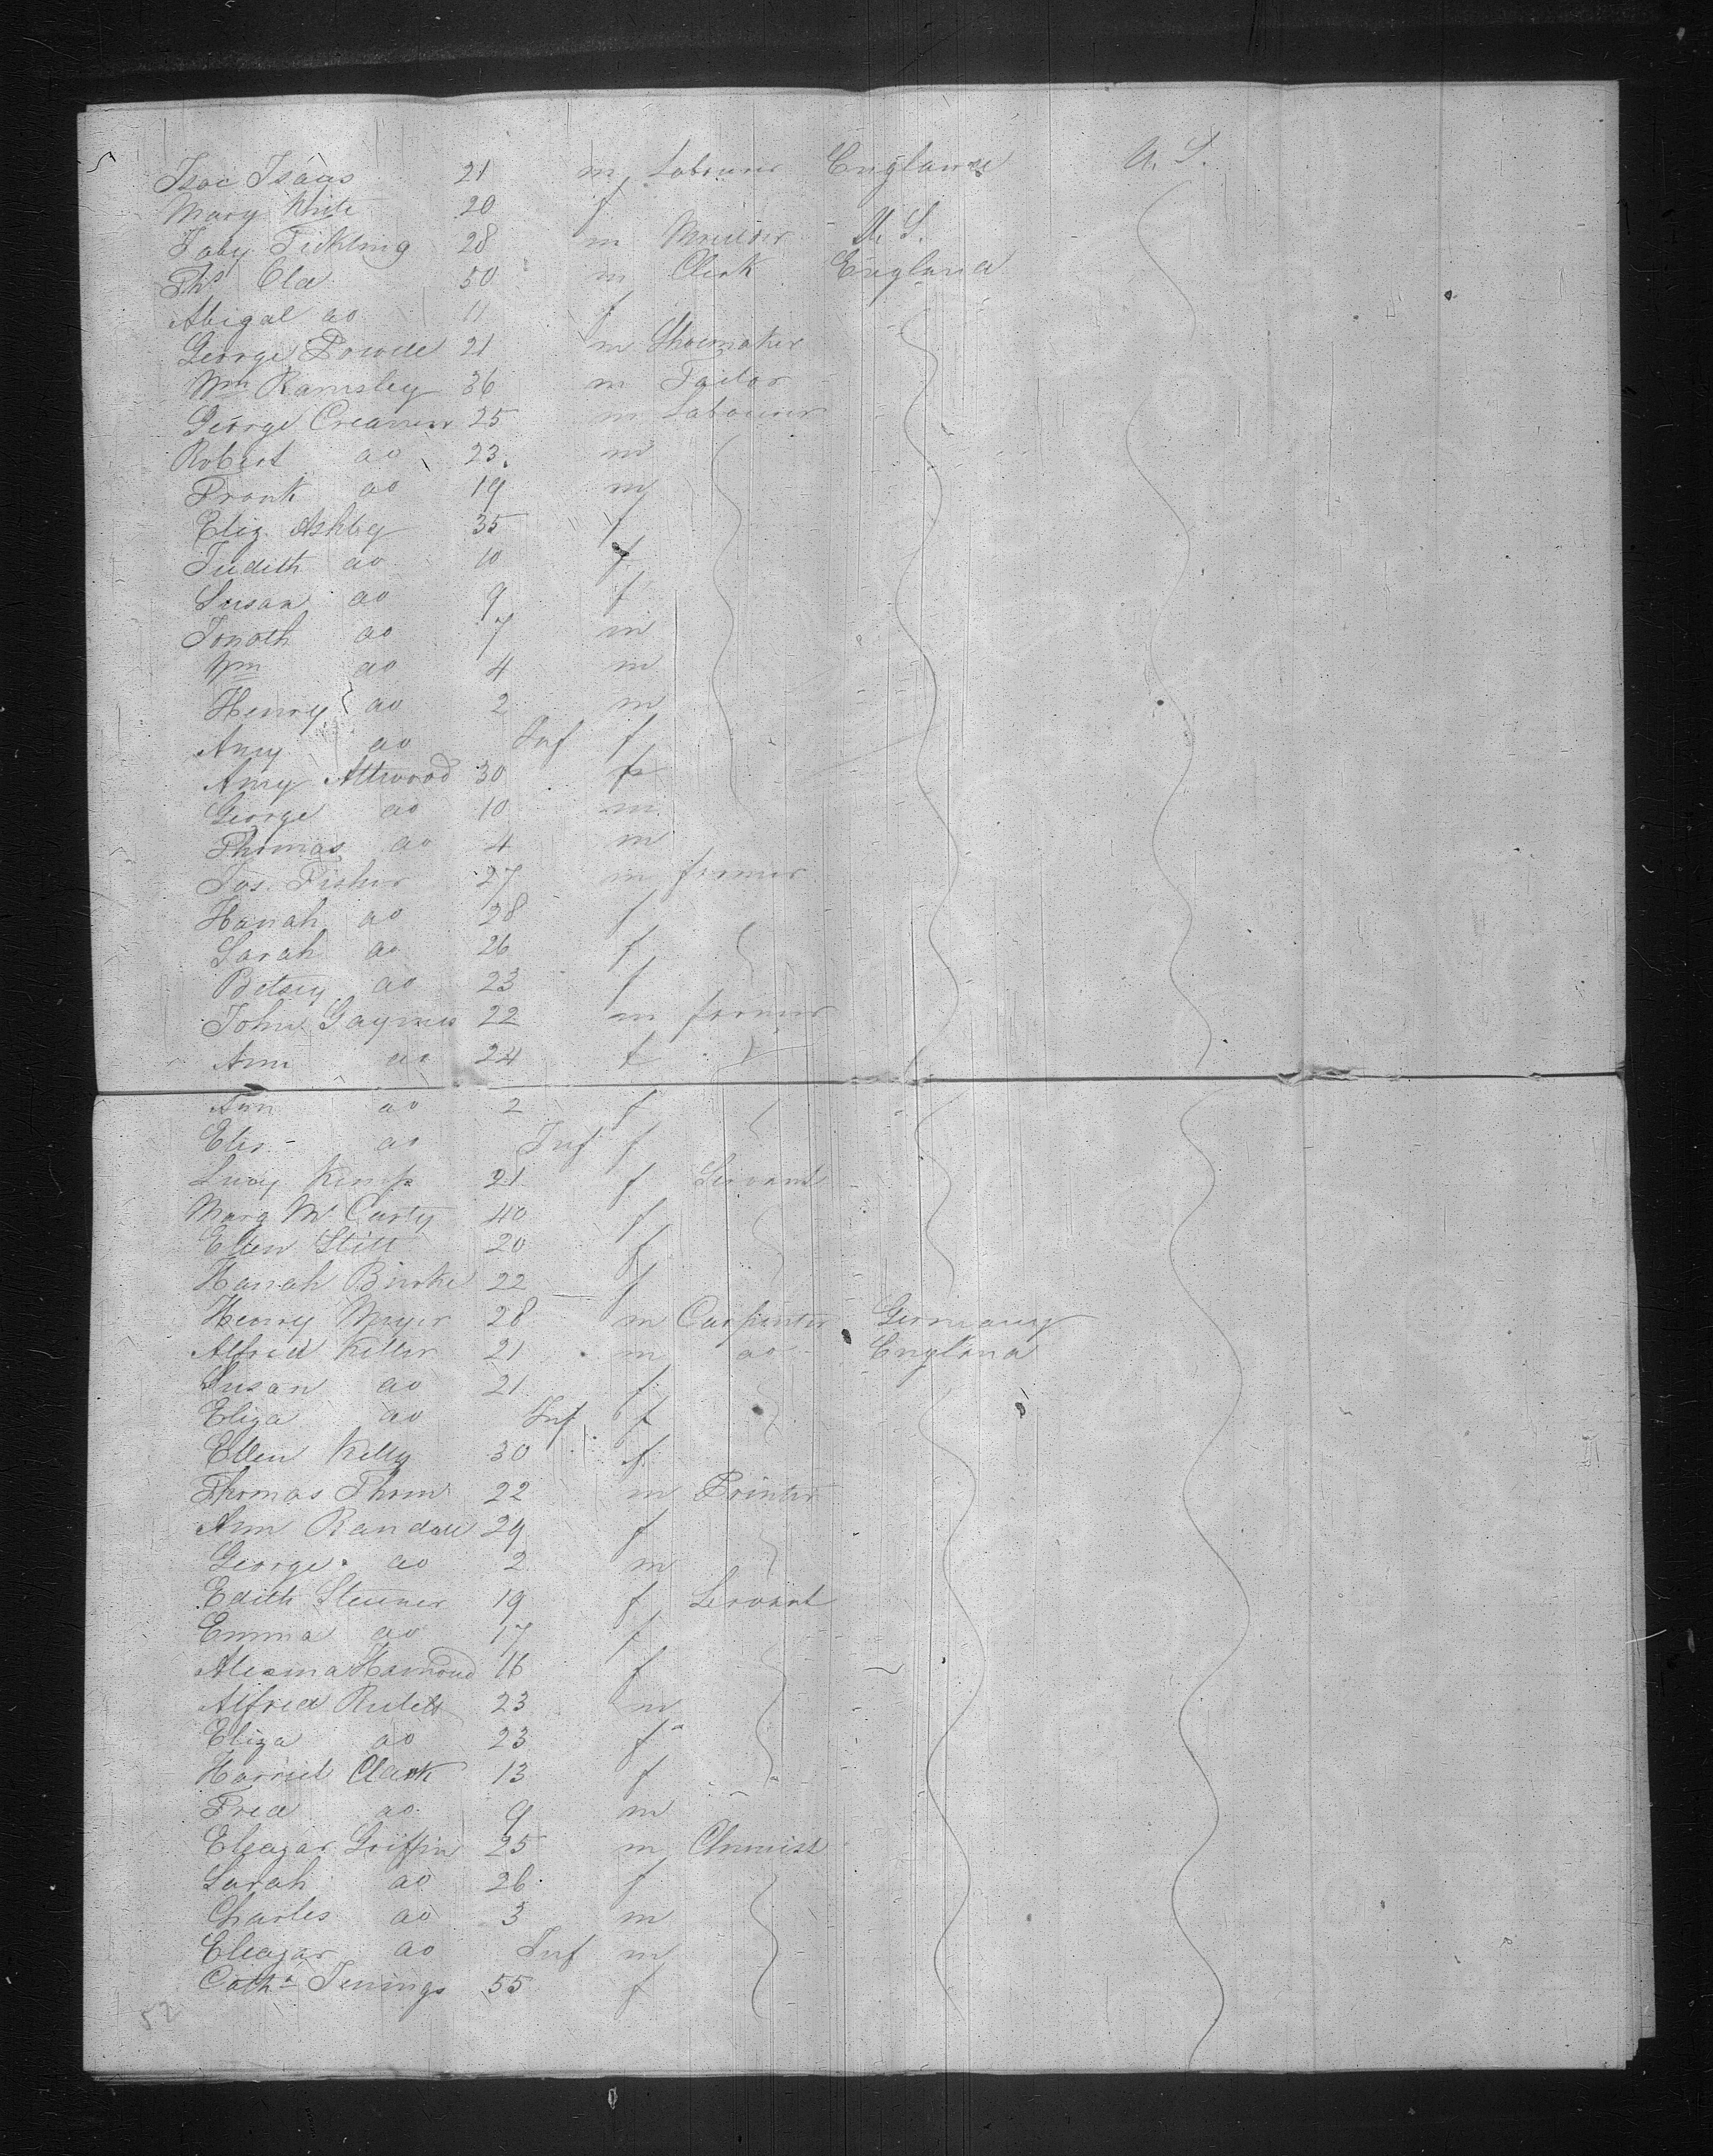 5
Isac Isaacs 21 m Labourer England U. S.
Mary White 20 f
Toby Tickling 28 m Moulder U. S.
Ths Old 50 m Clerk England
Abigal do 11 f
George Powell 21 m Shoemaker
Wm Ramsley 36 m Tailor
George Creamer 25 m Labourer
Robert do 23 m
Frank do 19 m
Eliz Ashby 35 f
Judith do 10 f
Susan do 9 f
Jonath do 7 m
Wm do 4 m
Henry do 2 m
Amy do Inf f
Amy Attwood 30 f
George do 10 m
Thomas do 4 m
Jos. Fisher 27 m farmer
Hanah do 28 f
Sarah do 26 f
Betsey do 23 f
John Gaynes 22 m farmer
Ann do 24 f
Ann do 2 f
Eliz do Inf f
Lucy Kemp 21 f Servant
Marg Mc Carty 40 f
Ellen Still 20 f
Hanah Burke 22 f
Henry Meyer 28 m Carpenter Germany
Alfred Keller 21 m do England
Susan do 21 f
Eliza do Inf f
Ellen Kelly 30 f
Thomas Thom 22 m Printer
Ann Randall 29 f
George do 2 m
Edith 19 f Servant
Emma do 17 f
Hamond 16 f
Alfred 23 m
Eliza do 23 f
Harriet Clark 13 f
Fred do 9 m
Eleazar Griffin 25 m Chemist
Sarah do 26 f
Charles do 3 m
Eleazar do Inf m
Cath Jenings 55 f
52